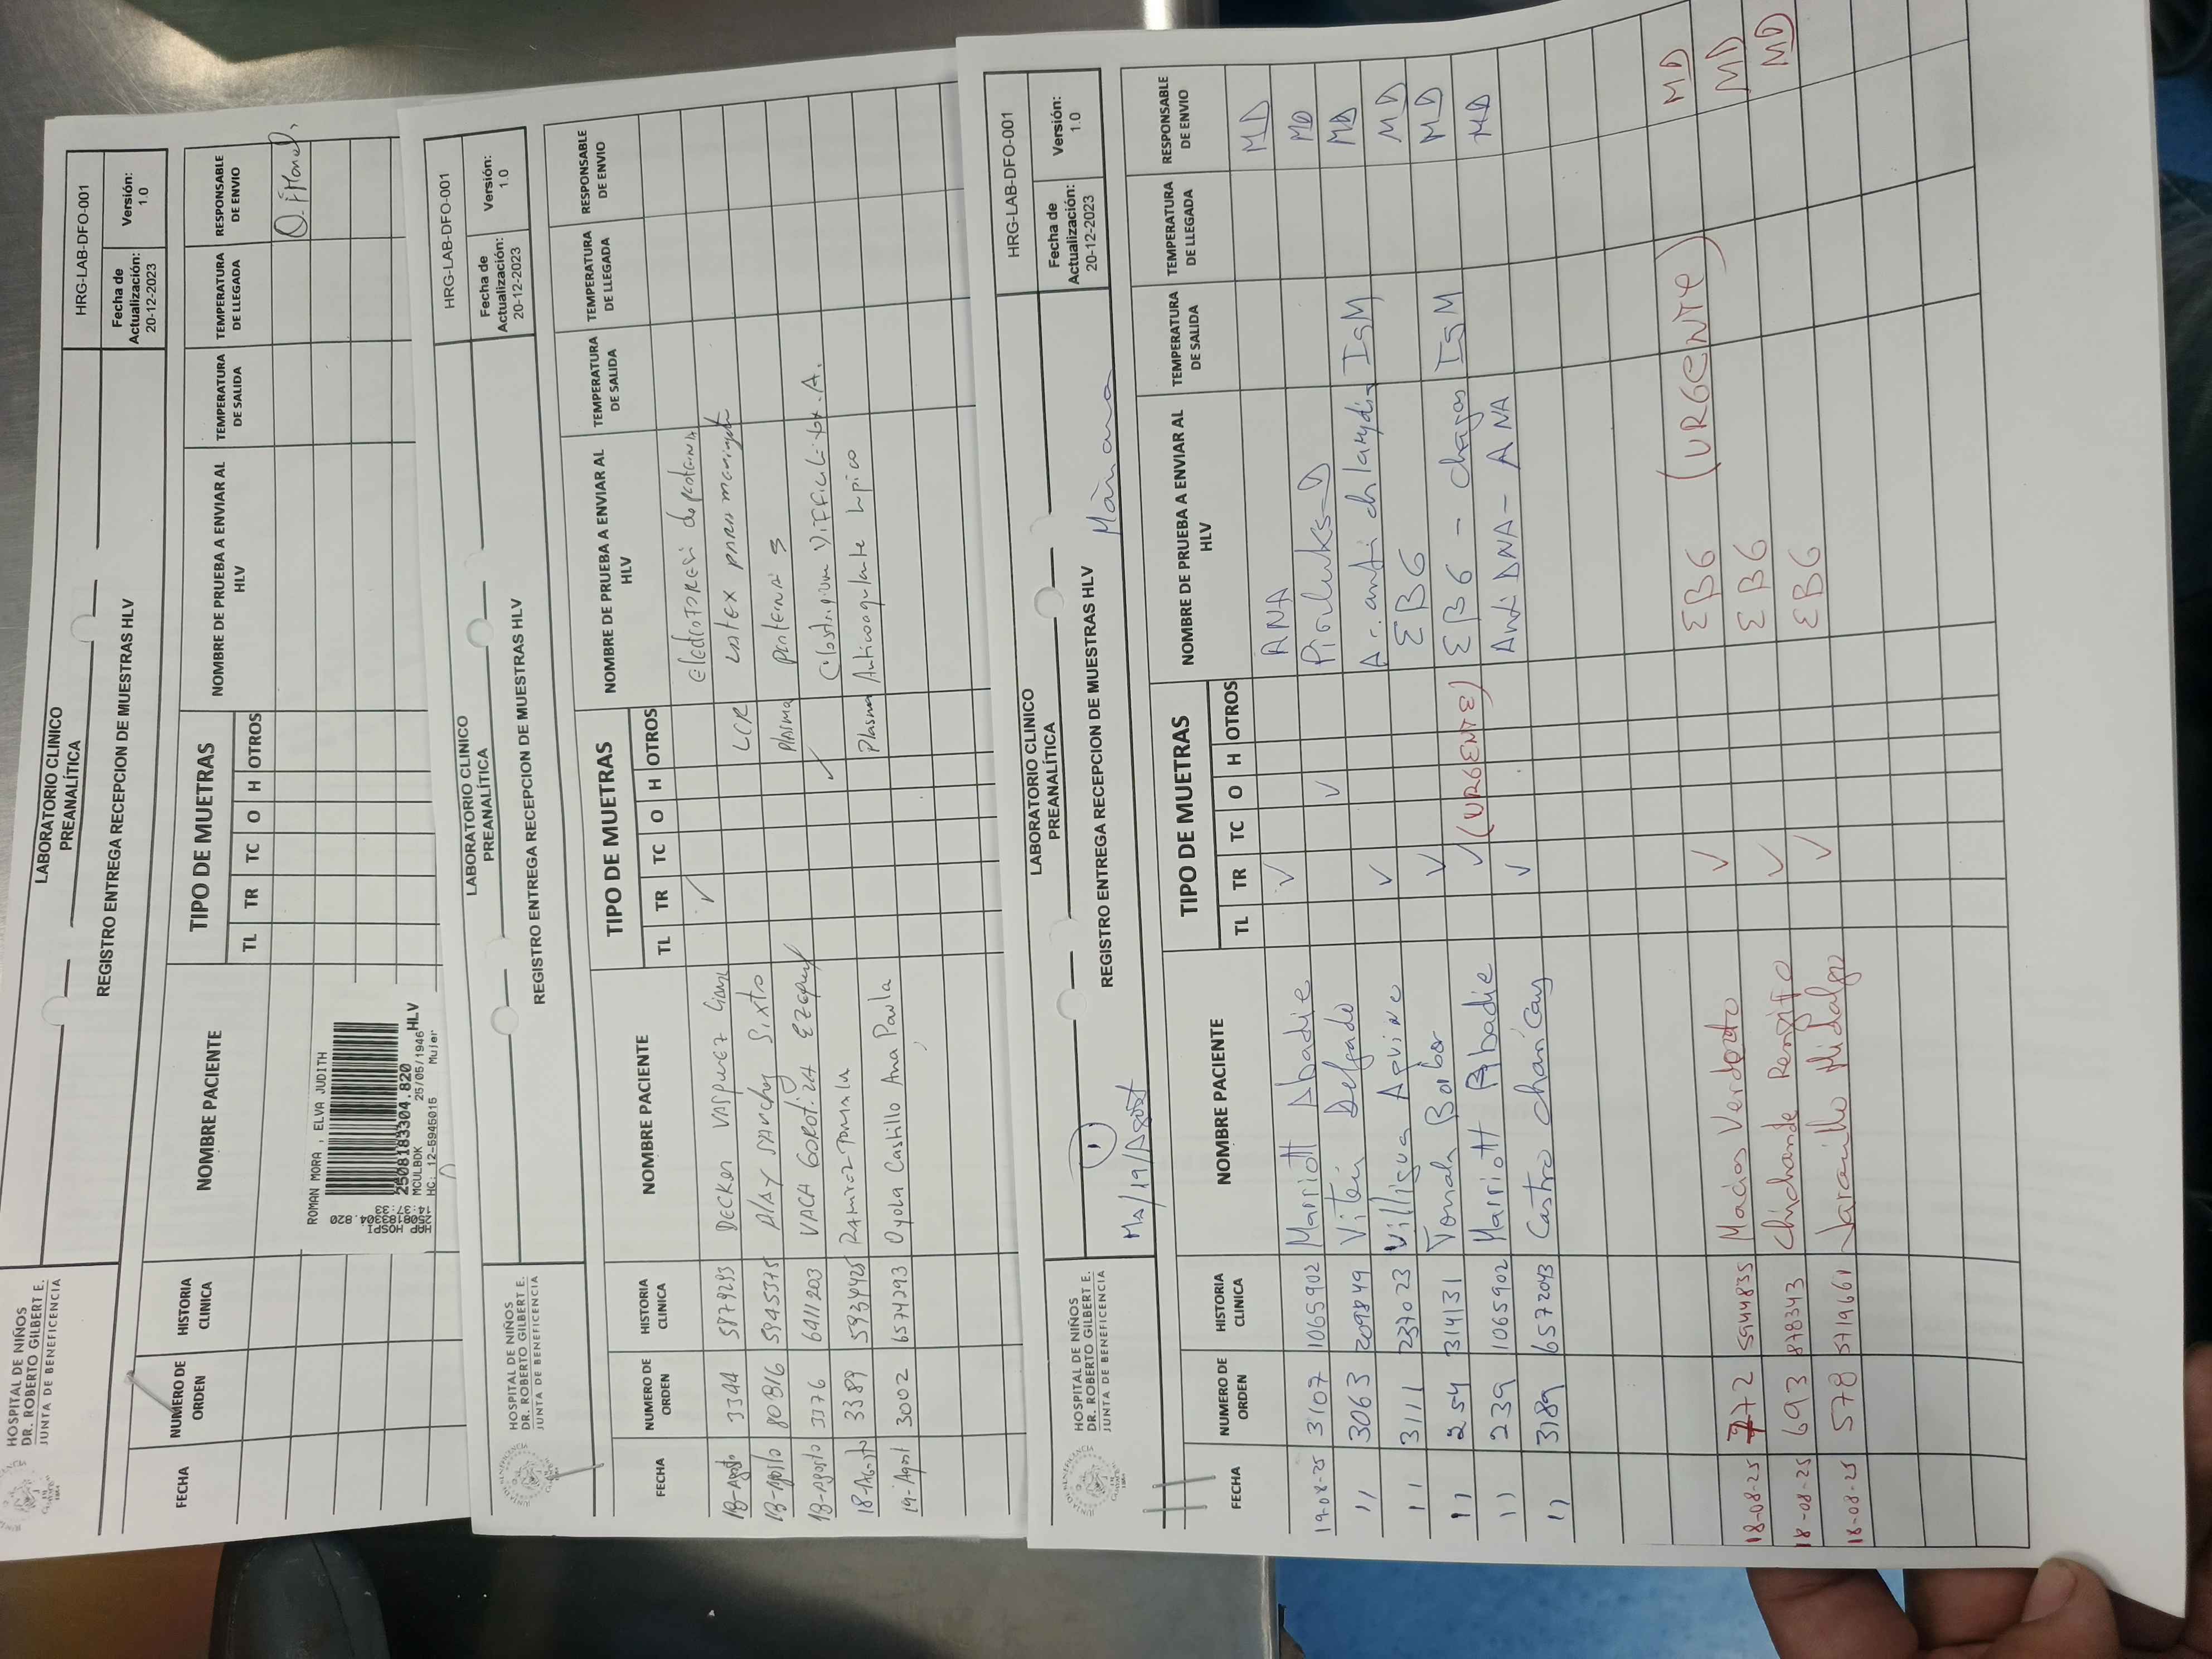 HOSPITAL DE NIÑOS
DR. ROBERTO GILBERT E.
JUNTA DE BENEFICENCIA
LABORATORIO CLINICO
PREANALÍTICA
REGISTRO ENTREGA RECEPCION DE MUESTRAS HLV
HRG-LAB-DFO-001
Fecha de Actualización: 20-12-2023
Versión: 1.0
FECHA NUMERO DE ORDEN HISTORIA CLINICA NOMBRE PACIENTE TIPO DE MUETRAS NOMBRE DE PRUEBA A ENVIAR AL HLV TEMPERATURA DE SALIDA TEMPERATURA DE LLEGADA RESPONSABLE DE ENVIO
TL TR TC O H OTROS
ROMAN MORA , ELVA JUDITH
2508183304.820
MCULBDK 25/05/1946 HLV
HC: 12-5945015 Mujer
HOSPI
14:37:33
2508183304.820
HOSPITAL DE NIÑOS
DR. ROBERTO GILBERT E.
JUNTA DE BENEFICENCIA
LABORATORIO CLINICO
PREANALÍTICA
REGISTRO ENTREGA RECEPCION DE MUESTRAS HLV
HRG-LAB-DFO-001
Fecha de Actualización: 20-12-2023
Versión: 1.0
FECHA NUMERO DE ORDEN HISTORIA CLINICA NOMBRE PACIENTE TIPO DE MUETRAS NOMBRE DE PRUEBA A ENVIAR AL HLV TEMPERATURA DE SALIDA TEMPERATURA DE LLEGADA RESPONSABLE DE ENVIO
TL TR TC O H OTROS
18-Agosto 3344 5879293 DECKER VASQUEZ ✓ electroforesis de proteina
18-Agosto 80816 5945375 PLAY SANCHEZ Sixto LCR Latex para
18-Agosto 3376 6411203 VACA GOROTIZA Plasma proteina S
18-Agosto 3389 5934425 Ramirez ✓ Clostridium DIFFICILE tox. A.
19-Agost 3002 6574293 Oyola Castillo Ana Paula Plasma Anticoagulante Lupico
HOSPITAL DE NIÑOS
DR. ROBERTO GILBERT E.
JUNTA DE BENEFICENCIA
LABORATORIO CLINICO
PREANALÍTICA
REGISTRO ENTREGA RECEPCION DE MUESTRAS HLV
HRG-LAB-DFO-001
Fecha de Actualización: 20-12-2023
Versión: 1.0
1
Ma/19/Agost
Mañana
FECHA NUMERO DE ORDEN HISTORIA CLINICA NOMBRE PACIENTE TIPO DE MUETRAS NOMBRE DE PRUEBA A ENVIAR AL HLV TEMPERATURA DE SALIDA TEMPERATURA DE LLEGADA RESPONSABLE DE ENVIO
TL TR TC O H OTROS
19-08-25 3107 1065902 Marriott Abadie ✓ ANA MD
11 3063 209849 Viteri Delgado ✓ MD
11 3111 237023 Villigua Aquino ✓ Ac. anti chlamydia IgM MD
11 254 314131 Tomala Barbor ✓ EB6 MD
11 239 1065902 Marriott Abbadie ✓ (URGENTE) EB6 - chagas IgM MD
11 3189 6572043 Castro Charicay ✓ Anti DNA - ANA MD
18-08-25 772 5944835 Macias Verdezoto ✓ EB6 (URGENTE) MD
18-08-25 693 878343 Chichande Rengifo ✓ EB6 MD
18-08-25 578 5719661 Jaramillo Hidalgo ✓ EB6 MD